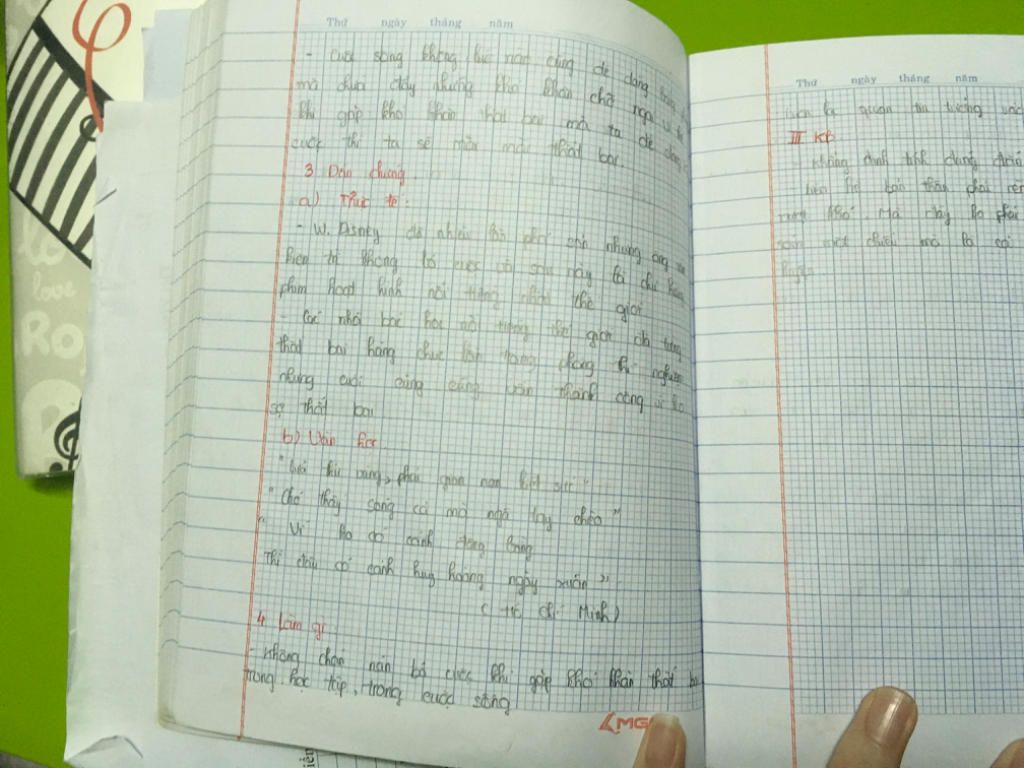 Thứ ngày tháng năm
- Cuộc sống không lúc nào cũng dễ dàng
mà chứa đầy những khó khăn chờ ngại vì
khi gặp khó khăn thất bại mà ta dễ dàng
cuộc thì ta sẽ mãi mãi thất bại
3 Dẫn chứng
a) Thực tế:
- W. Disney đã nhiều lần phá sản nhưng ông
kiên trì không bỏ cuộc và sau này là chủ hãng
phim hoạt hình nổi tiếng nhất thế giới
- Các nhà bác học nổi tiếng thế giới đã từng
thất bại hàng chục lần trong phòng thí nghiệm
nhưng cuối cùng cũng vẫn thành công vì
sợ thất bại
b) Văn học
"Lửa thử vàng, gian nan sức"
"Chớ thấy sóng cả mà ngã tay chèo"
" Ví ko có cảnh đông
Thì đâu có cảnh huy hoàng ngày xuân"
( Hồ Chí Minh)
4 Làm gì
- Không chán nản bỏ cuộc khi gặp khó khăn thất
trong học tập, trong cuộc sống
MG
Thứ ngày tháng năm
quan tin tưởng
III KB
- Khẳng định tính đúng đắn
Liên hệ bản thân phải rèn
khó. Mà này ko phải
một chiều mà là cả
love
Ro